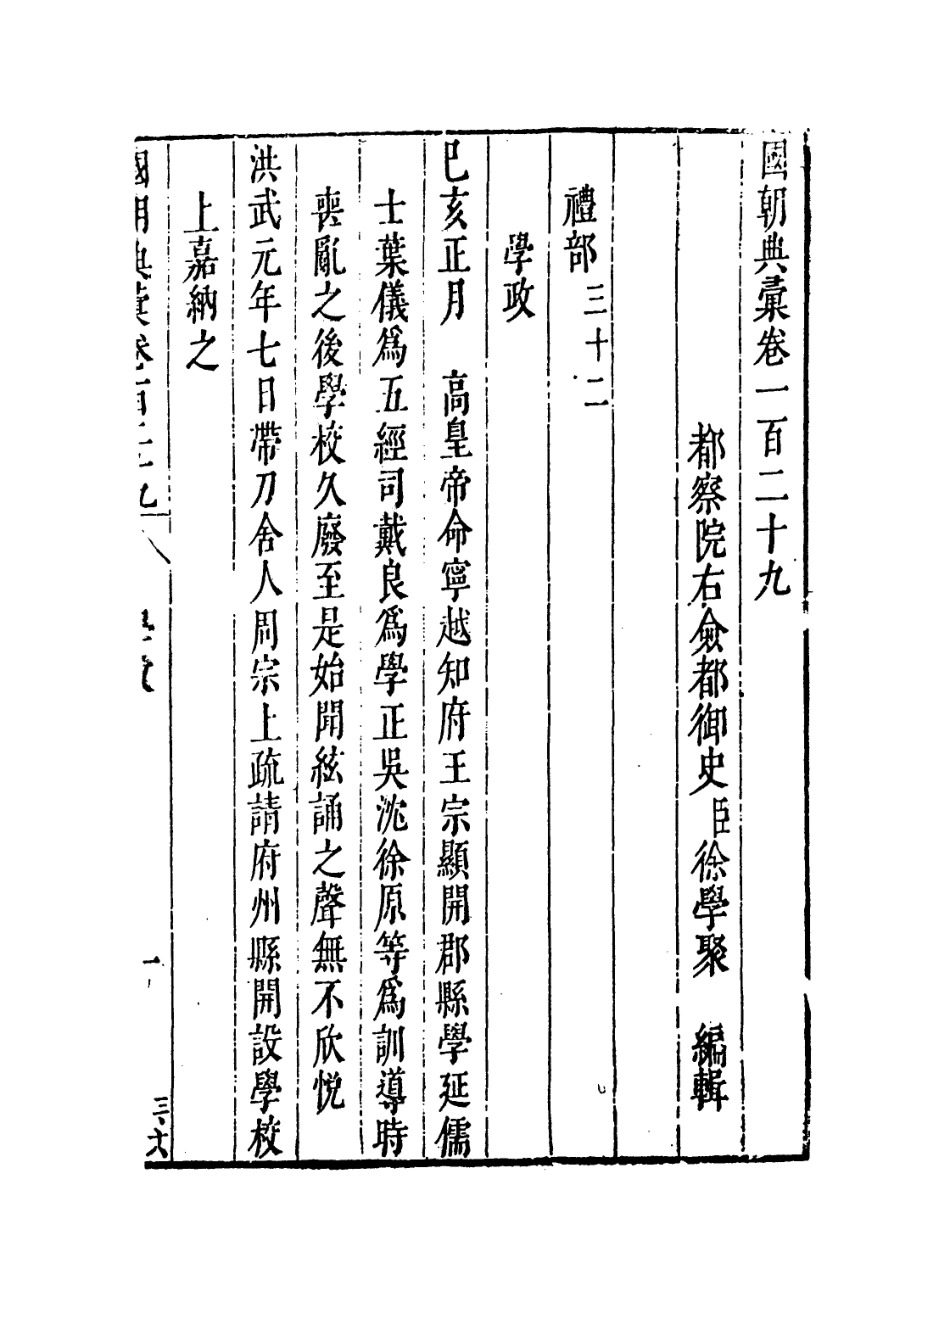 國朝典彙卷一百二十九
都察院右僉都御史臣徐學聚 編輯
禮部三十二
學政
己亥正月 高皇帝命寧越知府王宗顯開郡縣學延儒
士葉儀爲五經司戴良爲學正吳沈徐原等爲訓導時
喪亂之後學校久廢至是始聞絃誦之聲無不欣悅
洪武元年七日帶刀舍人周宗上疏請府州縣開設學校
上嘉納之
國朝典彙卷一百二十九 學政 一